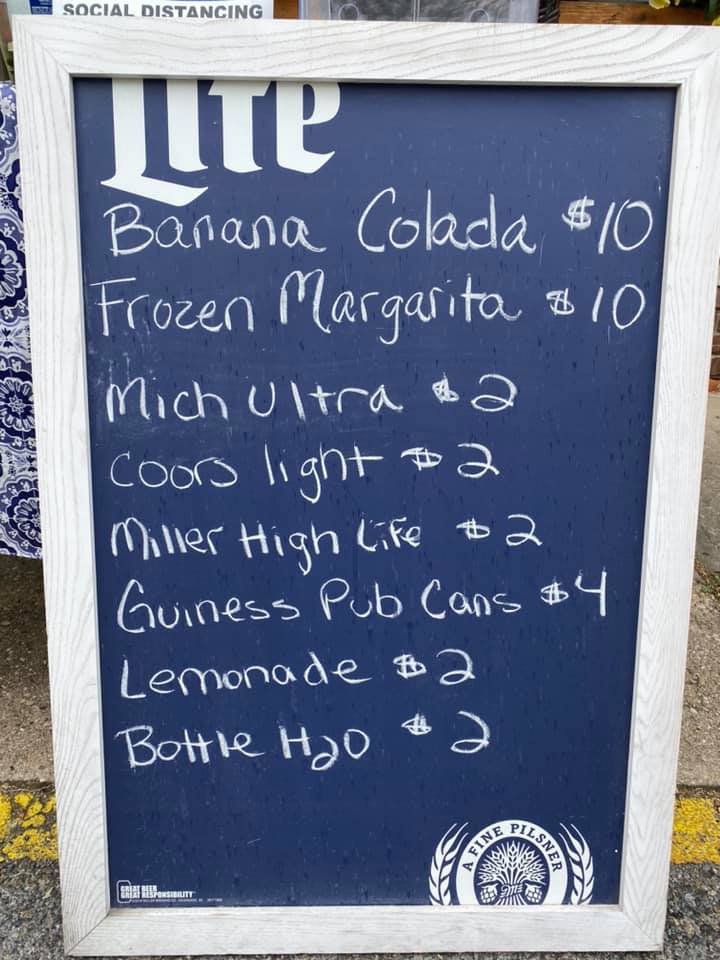 SOCIAL DISTANCING
Lite
Banana Colada $10
Frozen Margarita $10
Mich Ultra $2
Coors light $2
Miller High Life $2
Guiness Pub Cans $4
Lemonade $2
Bottle H2O $2
A FINE PILSNER
GREAT BEER
GREAT RESPONSIBILITY